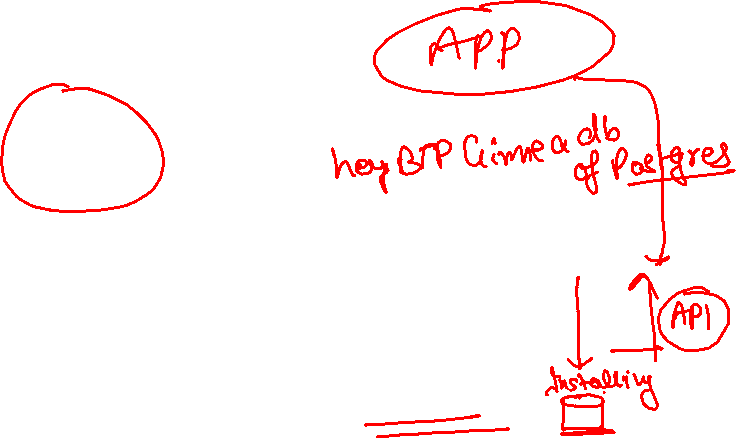 APP
hey BTP Gimme a db
of Postgres
API
Installing